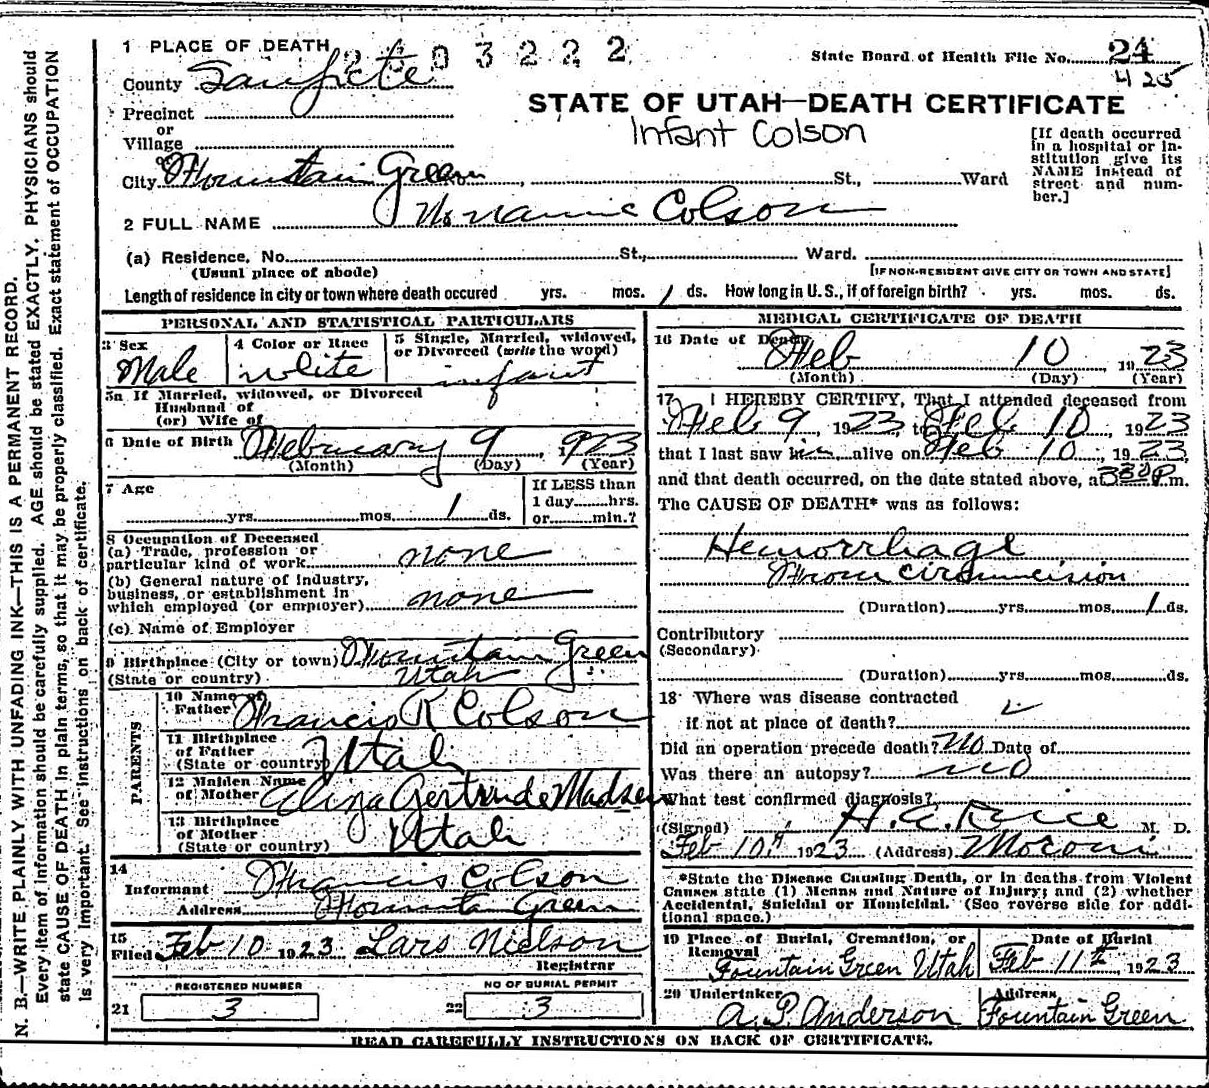 1 PLACE OF DEATH 2693222
State Board of Health File No. 24
425
County Sanpete
STATE OF UTAH—DEATH CERTIFICATE
Precinct
or
Village
Infant Colson
[If death occurred in a hospital or institution give its NAME instead of street and number.]
or
City Mountain Green, St., Ward
2 FULL NAME No Name Colson
(a) Residence, No. St., Ward.
(Usual place of abode)
[IF NON-RESIDENT GIVE CITY OR TOWN AND STATE]
Length of residence in city or town where death occured yrs. mos. 1 ds. How long in U. S., if of foreign birth? yrs. mos. ds.
PERSONAL AND STATISTICAL PARTICULARS
3 Sex
Male
4 Color or Race
white
5 Single, Married, widowed,
or Divorced (write the word)
infant
5a If Married, widowed, or Divorced
Husband of
(or) Wife of
6 Date of Birth February 9, 1923
(Month) (Day) (Year)
7 Age
yrs. mos. 1 ds.
If LESS than
1 day hrs.
or min.?
8 Occupation of Deceased
(a) Trade, profession or
particular kind of work none
(b) General nature of industry,
business, or establishment in
which employed (or employer) none
(c) Name of Employer
9 Birthplace (City or town) Mountain Green
(State or country) Utah
PARENTS
10 Name of
Father Francis R Colson
11 Birthplace
of Father
(State or country) Utah
12 Maiden Name
of Mother Eliza Gertrude Madsen
13 Birthplace
of Mother
(State or country) Utah
14
Informant Francis Colson
Address Mountain Green
15
Filed Feb 10 1923 Lars Nielson
Registrar
REGISTERED NUMBER
21 3
NO OF BURIAL PERMIT
22 3
MEDICAL CERTIFICATE OF DEATH
16 Date of Death
Feb 10 1923
(Month) (Day) (Year)
17 I HEREBY CERTIFY, That I attended deceased from
Feb 9, 1923, to Feb 10, 1923
that I last saw him alive on Feb 10, 1923,
and that death occurred, on the date stated above, at 330 P.m.
The CAUSE OF DEATH* was as follows:
Hemorrhage
From circumcision
(Duration) yrs. mos. 1 ds.
Contributory
(Secondary)
(Duration) yrs. mos. ds.
18 Where was disease contracted
if not at place of death?
Did an operation precede death? No Date of
Was there an autopsy? no
What test confirmed diagnosis?
(Signed) H. A. Rice M. D.
Feb 10th 1923 (Address) Moroni
*State the Disease Causing Death, or in deaths from Violent
Causes state (1) Means and Nature of Injury; and (2) whether
Accidental, Suicidal or Homicidal. (See reverse side for addi-
tional space.)
19 Place of Burial, Cremation, or
Removal
Fountain Green Utah
Date of Burial
Feb 11th 1923
20 Undertaker
A. P. Anderson
Address
Fountain Green
READ CAREFULLY INSTRUCTIONS ON BACK OF CERTIFICATE.
N. B.—WRITE PLAINLY WITH UNFADING INK—THIS IS A PERMANENT RECORD.
Every item of information should be carefully supplied. AGE should be stated EXACTLY. PHYSICIANS should
state CAUSE OF DEATH in plain terms, so that it may be properly classified. Exact statement of OCCUPATION
is very important. See instructions on back of certificate.